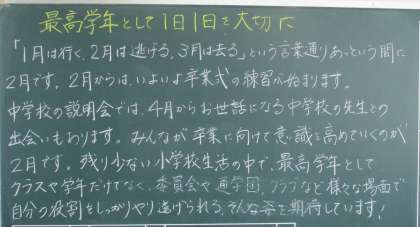 最高学年として1日1日を大切に
「1月は行く、2月は逃げる、3月は去る」という言葉通りあっという間に
2月です。2月からは、いよいよ卒業式の練習が始まります。
中学校の説明会では、4月からお世話になる中学校の先生との
出会いもあります。みんなが卒業に向けて意識を高めていくのが
2月です。残り少ない小学校生活の中で、最高学年として
クラスや学年だけでなく、委員会や通学団、クラブなど様々な場面で
自分の役割をしっかりやり遂げられる、そんな姿を期待しています!